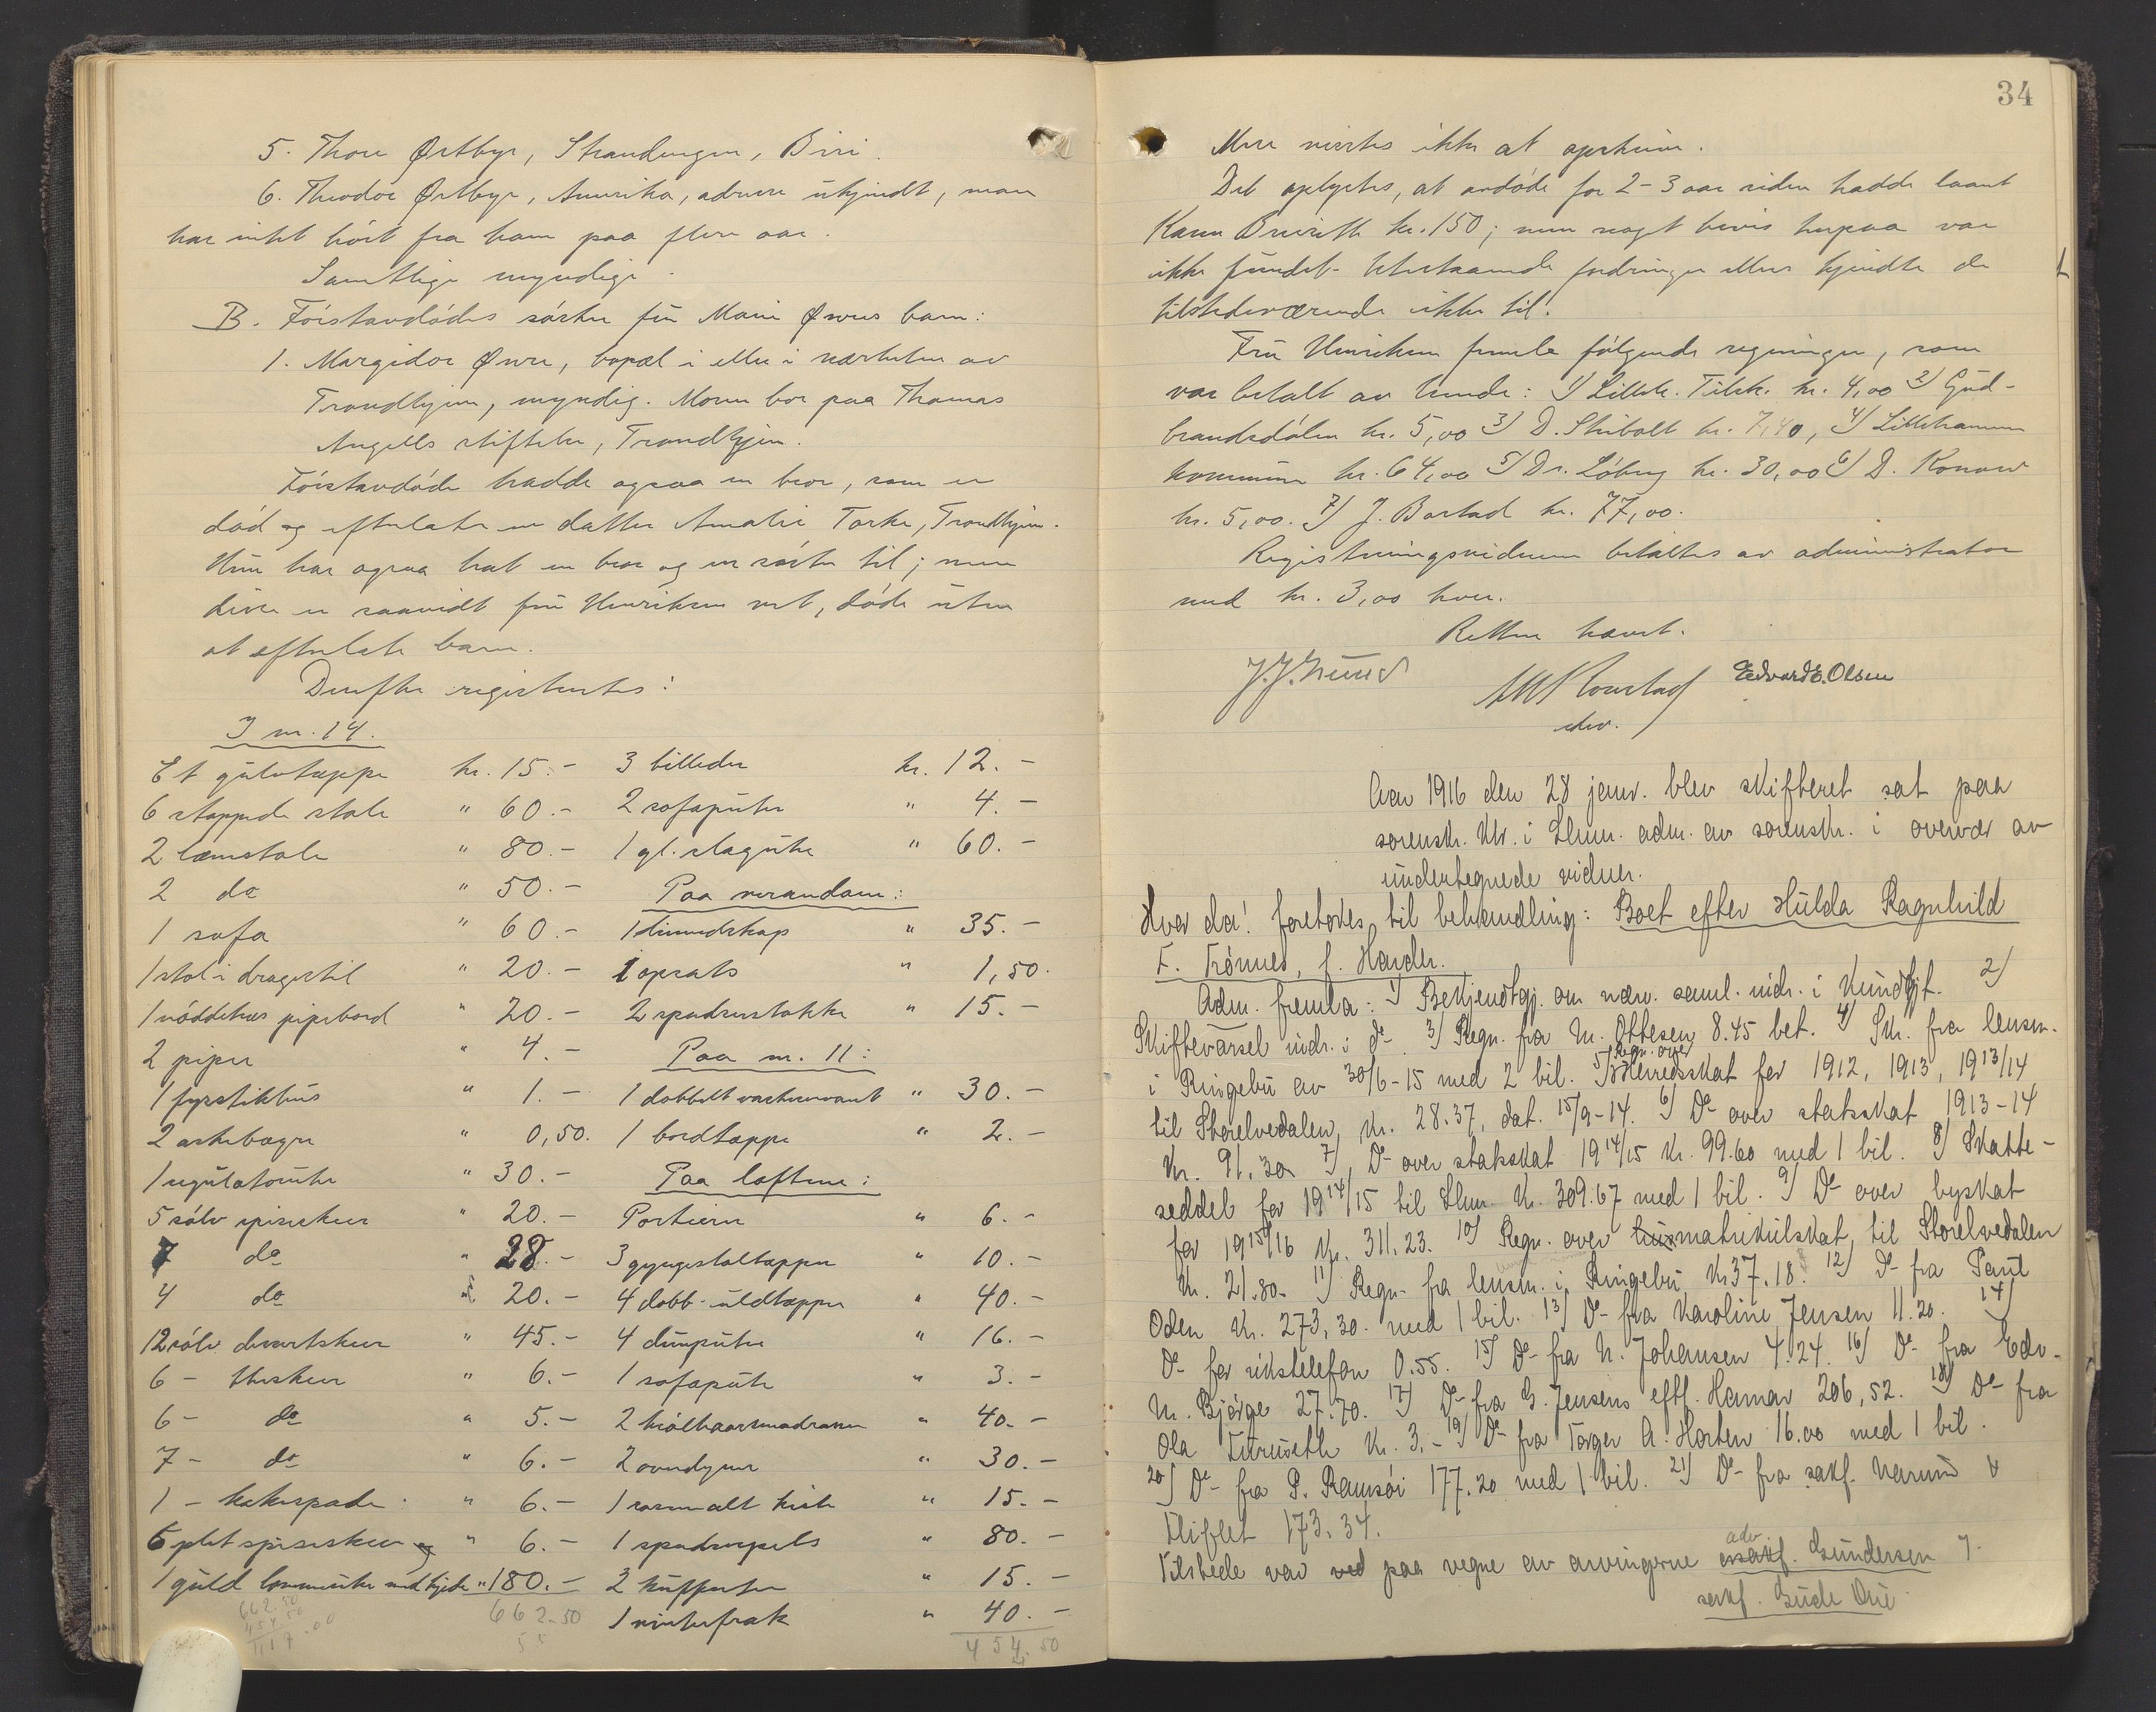 5. Thore Østbye, Strandengen, Biri.
6. Theodor Østbye, Amerika, adresse ukjendt, man
har intet hört fra ham paa flere aar.
Samtlige myndige.
B. Förstavdödes söster fru Marie Øwres barn:
1. Margidor Øwre, bopæl i eller i nærheten av
Trondhjem, myndig. Moren bor paa Thomas
Angells stiftelse, Trondhjem.
Förstavdöde hadde ogsaa en bror, som er
död og efterlater en datter Amalie Torke, Trondhjem.
Hun har ogsaa hat en bror og en söster til; men
disse er saavidt fru Henriksen vet, döde uten
at efterlate barn.
Derefter registrertes:
I nr. 14.
Et gulvtæppe kr. 15.-
6 stoppede stole " 60.-
2 lænstole " 80.-
2 do " 50.-
1 sofa " 60.-
1 stol i dragestil " 20.-
1 nöddetræs pipebord " 20.-
2 piper " 4.-
1 fyrstikhus " 1.-
2 askebægre " 0,50.
1 regulatoruhr " 30.-
5 sölv spiseskeer " 20.-
7 do " 28.-
4 do " 20.-
12 sölv dessertskeer " 45.-
6 - theskeer " 6.-
6 - do " 5.-
7 - do " 6.-
1 - kakespade " 6.-
6 plet spiseskeer og " 6.-
1 guld lommeuhr med kjede " 180.-
662.50
662.50
454.50
1117.00
3 billeder kr. 12.-
2 sofaputer " 4.-
1 gl. slaguhr " 60.-
Paa verandaen:
1 linnedskap " 35.-
1 opsats " 1,50.
2 spadserstokke " 15.-
Paa nr. 11:
1 dobbelt vaskeservant " 30.-
1 bordtæppe " 2.-
Paa loftene:
Portierer " 6.-
3 gyngestoltæpper " 10.-
4 dobb. uldtæpper " 40.-
4 dunputer " 16.-
1 sofapute " 3.-
2 krölhaarsmadrasser " 40.-
2 overdyner " 30.-
1 rosemalt kiste " 15.-
1 spadserpels " 80.-
2 kufferter " 15.-
1 vinterfrak " 40.-
454.50
34
Mere vistes ikke at opskrive.
Det oplystes, at avdöde for 2-3 aar siden hadde laant
Karen Breiseth kr. 150; men noget bevis herpaa var
ikke fundet. Utestaaende fordringer ellers kjendte de
tilstedeværende ikke til.
Fru Henriksen fremla fölgende regninger, som
var betalt av hende: 1) Lilleh. Tilsk. kr. 4,00 2) Gud-
brandsdölen kr. 5,00 3) D. Stribolt kr. 7,40, 4) Lillehammer
kommune kr. 64,00 5) Dr. Löberg kr. 30,00 6) D. Konow
kr. 5,00. 7) J. Bartad kr. 77,00.
Registreringsvidnene betaltes av administrator
med kr. 3,00 hver.
Retten hævet.
Edvard E. Olsen
Aar 1916 den 28 janv. blev skifteret sat paa
sorenskr. ktr. i Lhmr. adm. av sorenskr. i overvær av
undertegnede vidner.
Hvor da! foretokes til behandling: Boet efter Hulda Ragnhild
F. Trönnes, f. Harder.
Adm. fremla: 1) Bekjendtgj. om nærv. saml. indr. i Kundgjt. 2)
Skiftevarsel indr. i do. 3) Regn. fra M. Ottesen 8.45 bet. 4) Skr. fra lensm.
i Ringebu av 30/6-15 med 2 bil. 5) Regn. over Herredsskat for 1912, 1913, 1913/14
til Storelvedalen, kr. 28.37, dat. 15/9-14. 6) Do over statsskat 1913-14
Kr. 91.30 7) Do over statsskat 1914/15 kr. 99.60 med 1 bil. 8) Skatte-
seddel for 1914/15 til Lhmr. kr. 309.67 med 1 bil. 9) Do over byskat
for 1915/16 kr. 311.23. 10) Regn. over matrikulskat til Storelvedalen
kr. 21.80. 11) Regn. fra lensm. i Ringebu kr 37.18. 12) Do fra Paul
Oden kr. 273,30. med 1 bil. 13) Do fra Karoline Jensen 11.20. 14)
Do for rikstelefon 0.55. 15) Do fra N. Johansen 4.24. 16) Do fra Edv.
M. Bjørge 27.70. 17) Do fra G. Jensens eftf. Hamar 206,52. 18) Do fra
Ola Furuseth kr. 3.- 19) Do fra Torger A. Horten 16.00 med 1 bil.
20) Do fra P. Ramsöi 177.20 med 1 bil. 21) Do fra sakf. Narum &
Fliflet 173.34.
Tilstede var ved paa vegne av arvingerne adv. Gundersen
sakf. Gude Due